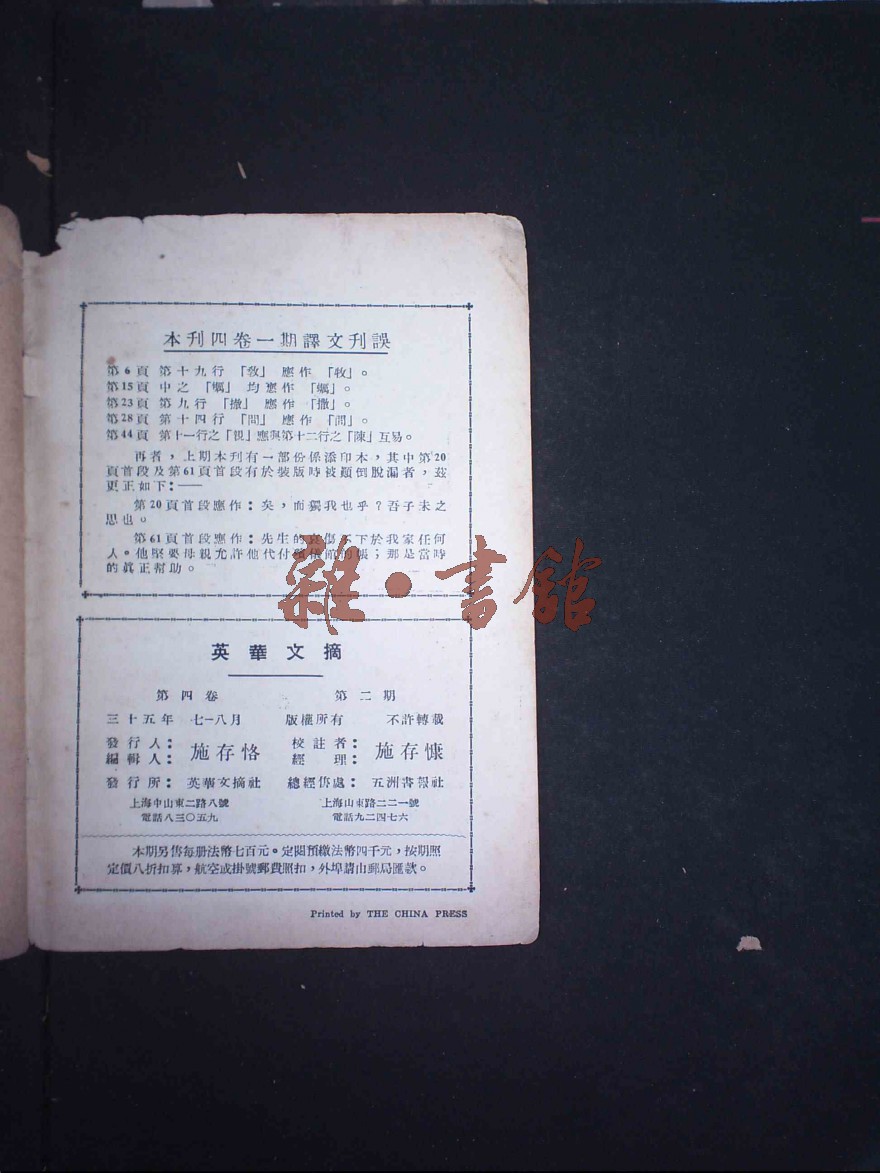 本刊四卷一期譯文刊誤
第6頁 第十九行 「敎」 應作 「牧」。
第15頁 中之 「蠣」 均應作 「蠣」。
第23頁 第九行 「撤」 應作 「撒」。
第28頁 第十四行 「問」 應作 「間」。
第44頁 第十一行之「親」應與第十二行之「陳」互易。
再者，上期本刊有一部份係添印本，其中第20
頁首段及第61頁首段有於裝版時被顚倒脫漏者，茲
更正如下：——
第20頁首段應作：矣，而獨我也乎？吾子未之
思也。
第61頁首段應作：先生的哀傷不下於我家任何
人。他堅要母親允許他代付殯儀館的賬；那是當時
的眞正幫助。
雜•書館
英華文摘
第四卷 第二期
三十五年 七—八月 版權所有 不許轉載
發行人：
編輯人： 施存恪
校註者：
經理： 施存慷
發行所： 英華文摘社 總經售處： 五洲書報社
上海中山東二路八號 上海山東路二二一號
電話八三〇五九 電話九二四七六
本期另售每册法幣七百元。定閱預繳法幣四千元，按期照
定價八折扣算，航空或掛號郵費照扣，外埠請由郵局匯款。
Printed by THE CHINA PRESS